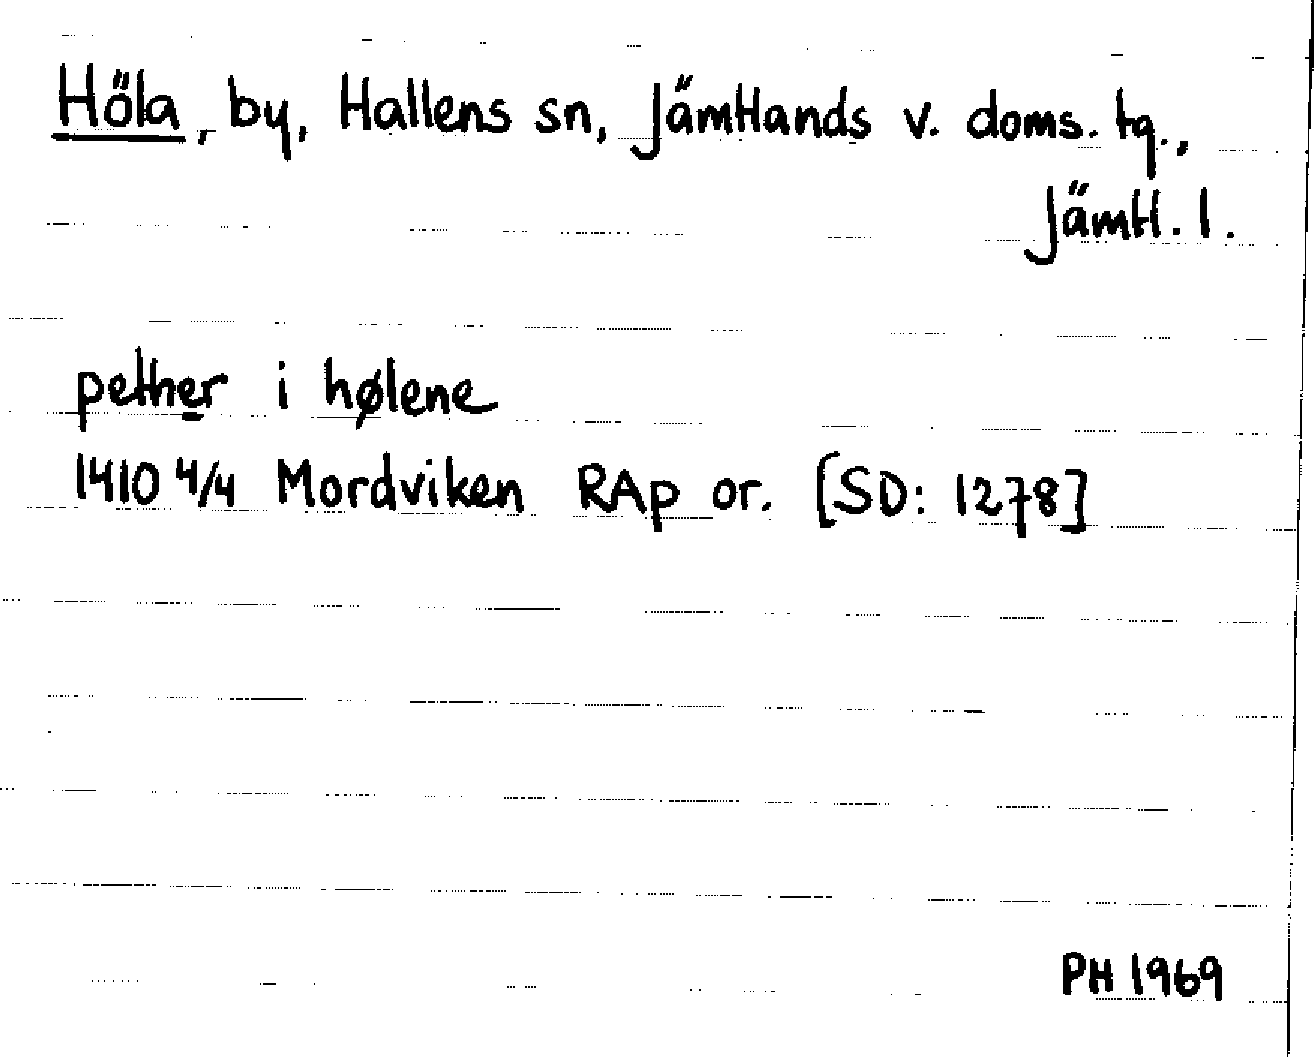 Höla, by, Hallens sn, Jämtlands v. doms. tg.,
Jämtl. l.
pether i hølene
1410 4/4 Mordviken RAp or. [SD: 1278]
PH 1969